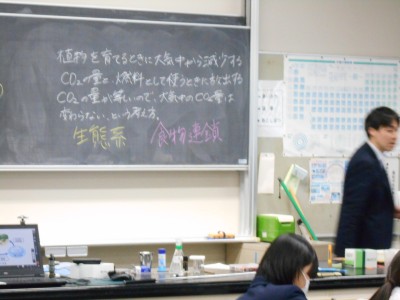 植物を育てるときに大気中から減少する
CO₂の量と、燃料として使うときに放出する
CO₂の量が等しいので、大気中のCO₂量は
変わらない、という考え方。
生態系 食物連鎖